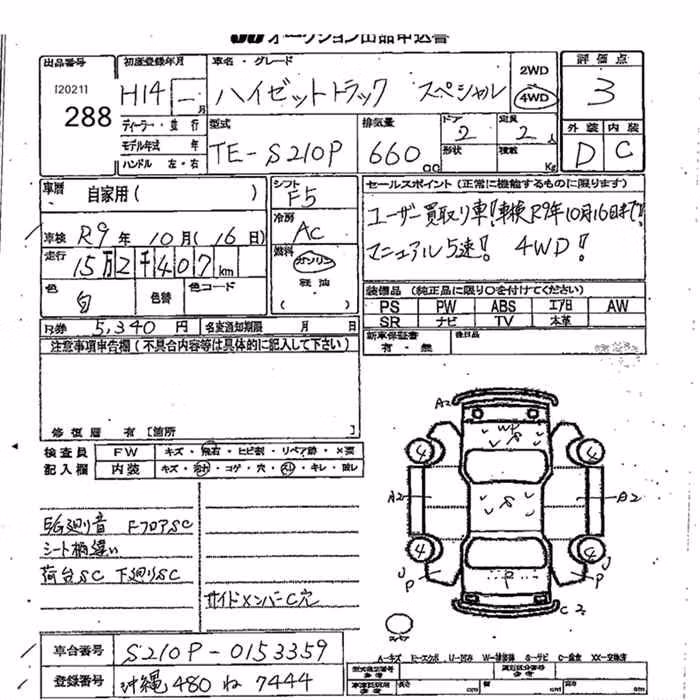 オークション出品申込書
出品番号 初度登録年月 車名・グレード 評価点
I20211
288
H14 一 月 ハイゼットトラック スペシャル 2WD 4WD 3
ディーラー・並行 型式 排気量 ドア 定員 外装 内装
モデル年式 年
ハンドル 左・右 TE-S210P 660 cc 2 2人 D C
形状 積載 Kg
車歴 自家用( ) シフト F5
セールスポイント(正常に機能するものに限ります)
車検 R9年 10月(16日) 冷房 AC
ユーザー買取り車!車検R9年10月16日まで!
マニュアル5速! 4WD!
走行 15万2千407km 燃料 ガソリン 軽油 ( )
色 白 色替 色コード
装備品(純正品に限り○を付けてください)
PS PW ABS エアB AW
SR ナビ TV 本革
R券 5,340円 名変通知期限 月 日
新車保証書 有・無 後日品
注意事項申告欄(不具合内容等は具体的に記入して下さい)
修復歴 有 [箇所
検査員 FW キズ・飛石・ヒビ割・リペア跡・×要
記入欄 内装 キズ・汚れ・コゲ・穴・スレ・キレ・
E/G廻り音 FフロアSC
シート柄違い
荷台SC 下廻りSC
サイドメンバーC穴
A2 WP
4 4
A2 S A2
4 4
J P P J P
C2
車台番号 S210P-0153359
登録番号 沖縄 480 ね 7444
A-キズ E-エクボ U-凹み W-補修跡 S-サビ C-腐食 XX-交換済